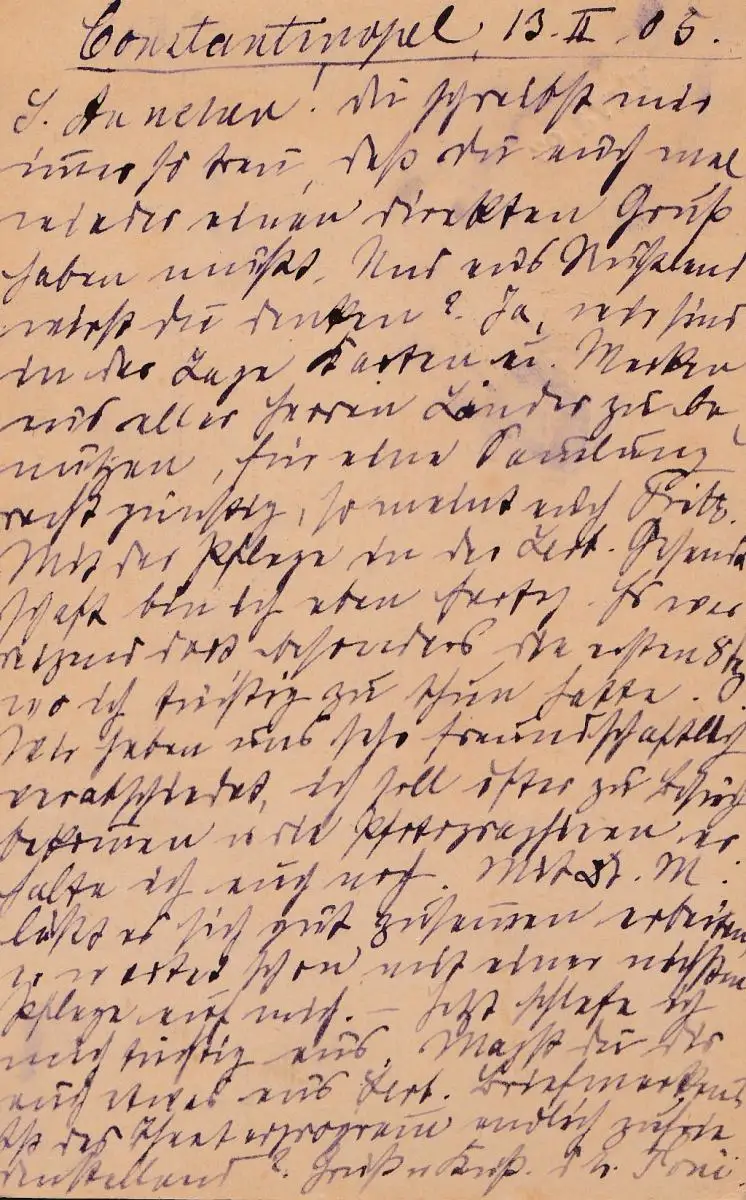 Constantinopel, 13. II. 05.
L. Annchen! Du schreibst mir
immer so treu, daß du auch mal
wieder einen direkten Gruß
haben mußt. Nur aus Rußland
wirst du denken? Ja, wir sind
in der Lage Karten u. Marken
aus aller Herren Länder zu be
nutzen, für eine Samlung
recht günstig, so meint auch Fritz.
Mit der Pflege in der Serb. Gesandt
schaft bin ich eben fertig. Es war
reizend dort besonders die ersten 8 Tg
wo ich tüchtig zu thun hatte.
Wir haben uns sehr freundschaftlich
verabschiedet, ich soll öfter zu Besuch
bekommen u die Photographieen er
halte ich auch noch. Mit Dr. M.
läßt es sich gut zusammen arbeiten,
er wartet schon mit einer nächsten
Pflege auf mich. – Jetzt schlafe ich
mich tüchtig aus. Magst du dir
auch etwas aus Serb. Briefmarken
Ist das Theaterprogramm endlich zufrie
denstellend? Gruß u Kuß. d. Toni